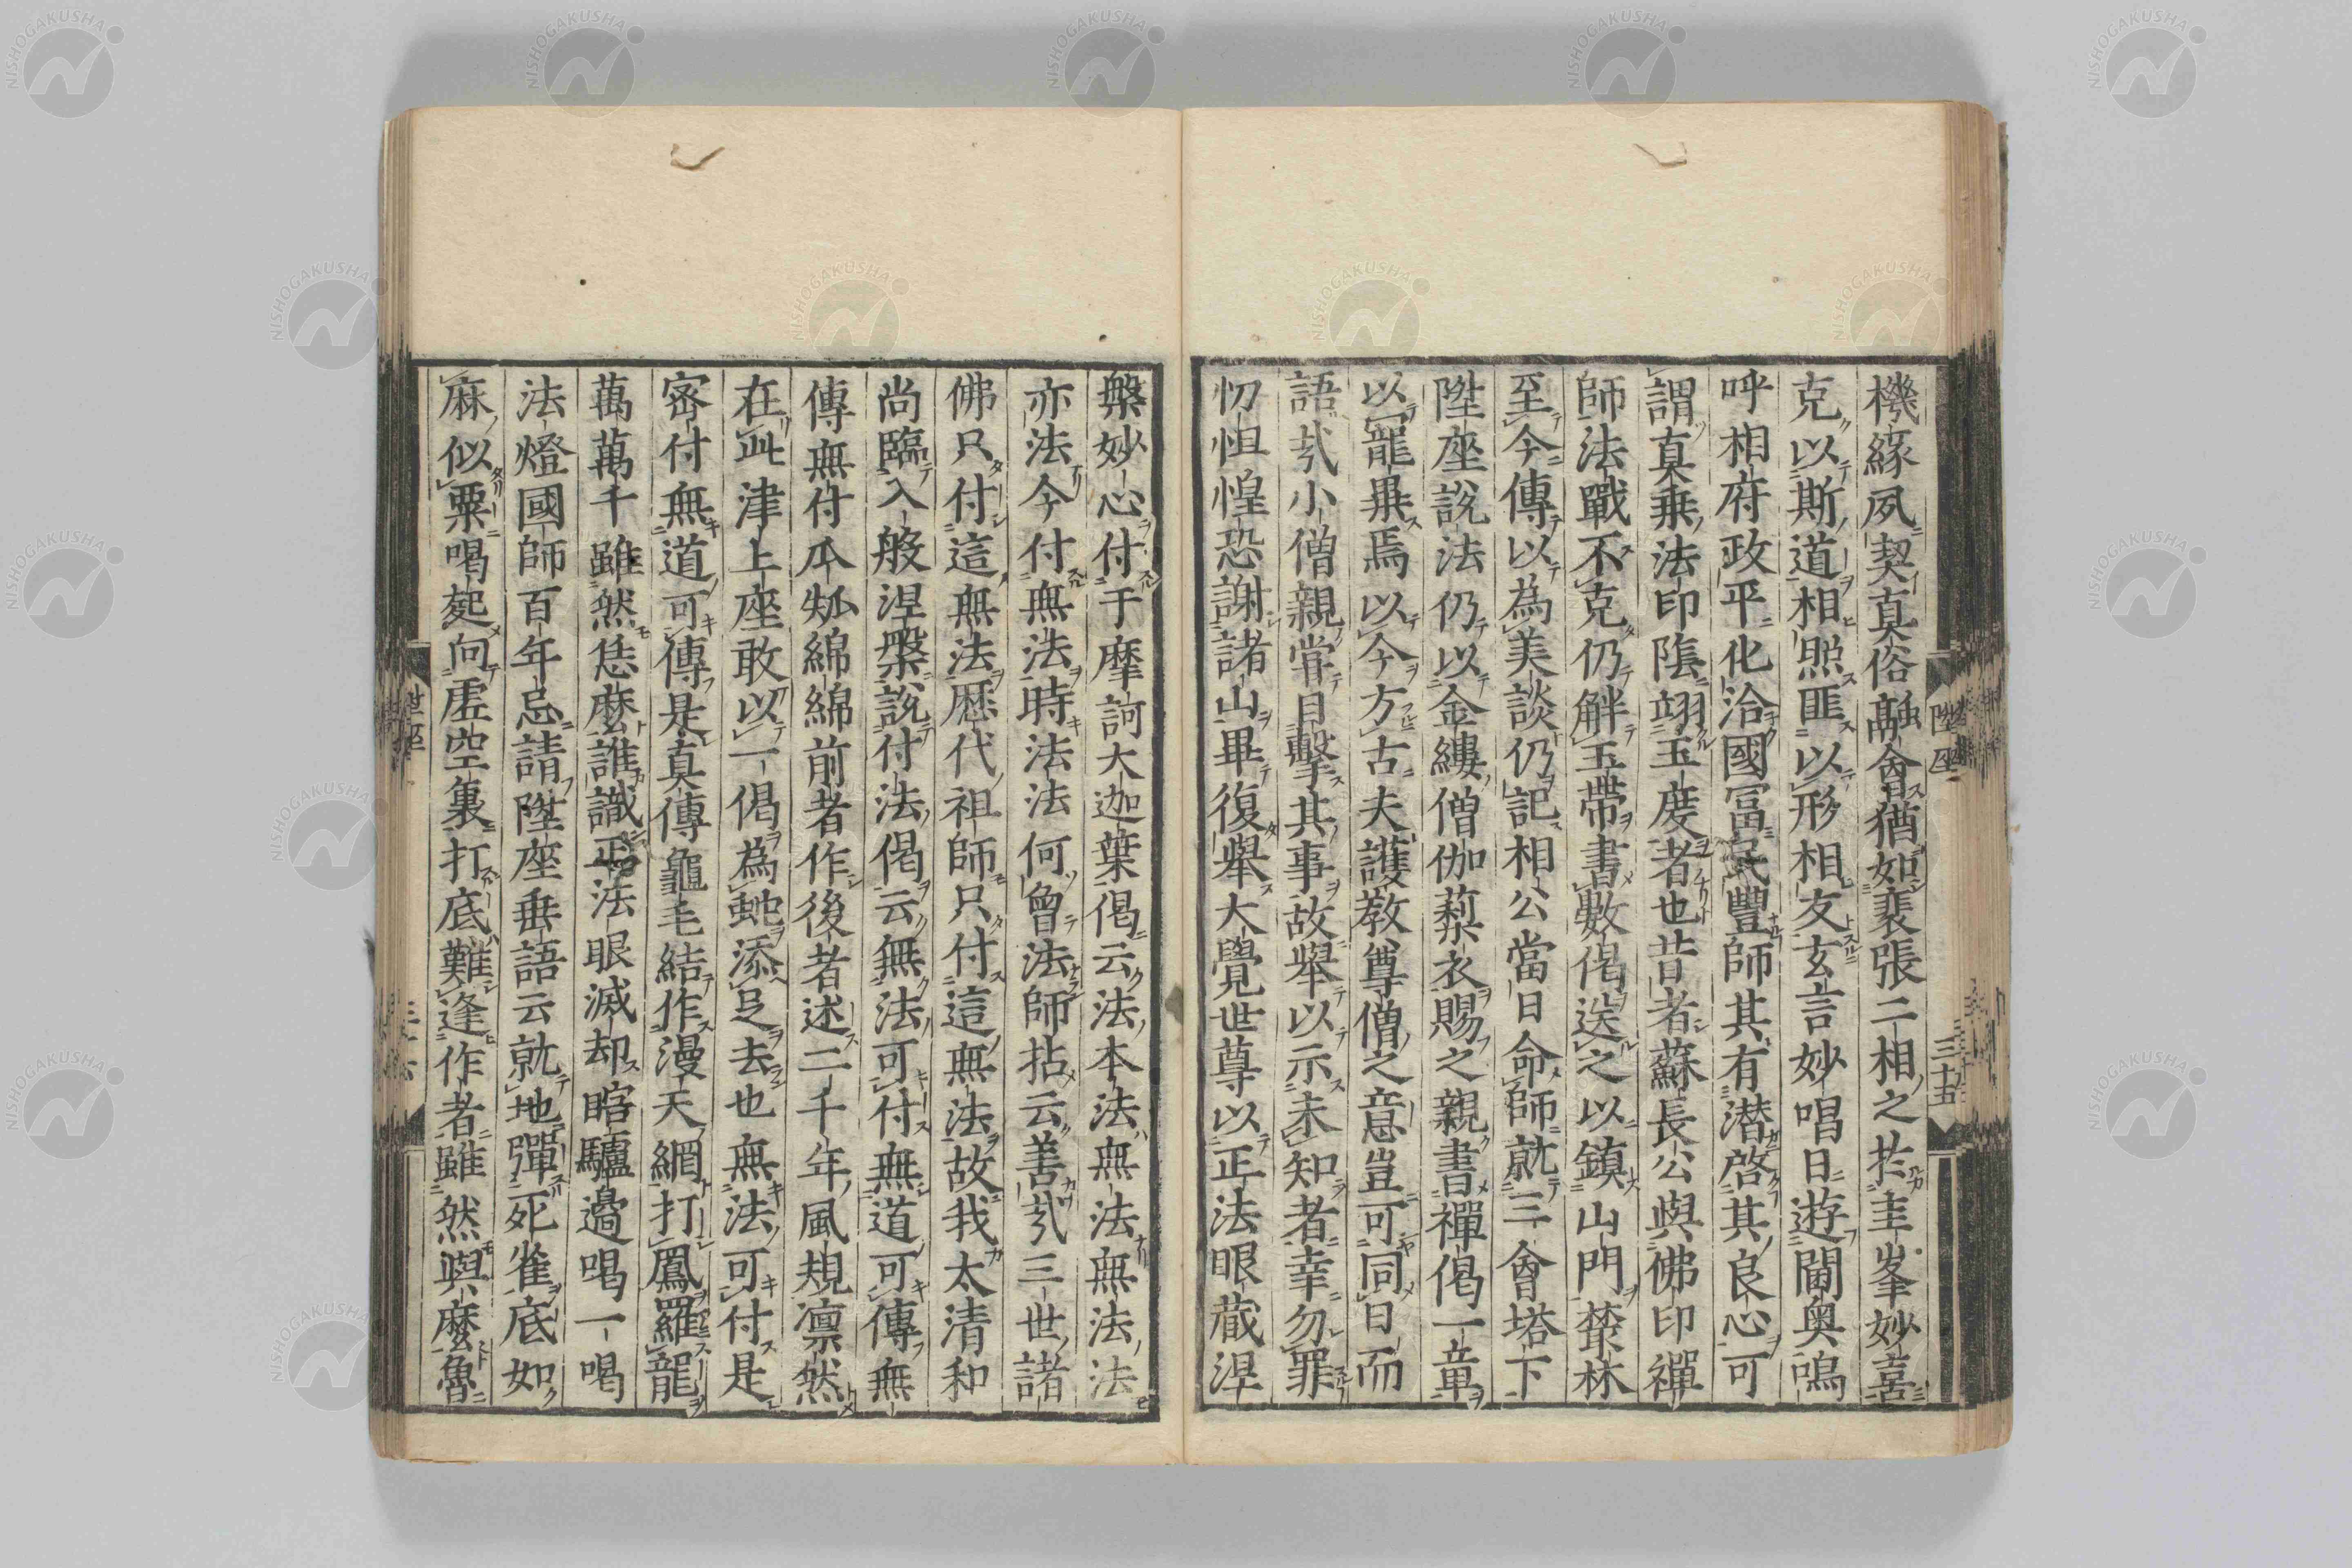 機緣夙契真俗融會猶如裴張二相之於圭峯妙喜
克以斯道相照匪以形相友玄言妙唱日遊閫奥鳴
呼相府政平化洽國富民豐師其有潜啓其良心可
謂真乗法印蔭翊玉度者也昔者蘇長公與佛印禪
師法戰不克仍解玉帶書數偈送之以鎮山門藂林
至今傳以為美談仍記相公當日命師就三會塔下
陞座說法仍以金縷僧伽梨衣賜之親書禪偈一章
以寵畀焉以今方古夫護教尊僧之意豈可同日而
語㢤小僧親嘗目擊其事故舉以示未知者幸勿罪
忉怛惶恐謝諸山畢復舉大覺世尊以正法眼蔵涅
槃妙心付于摩訶大迦葉偈云法本法無法無法法
亦法今付無法時法法何曾法師拈云善㢤三世諸
佛只付這無法歴代祖師只付這無法故我太清和
尚臨入般涅槃說付法偈云無法可付無道可傳無
傳無付瓜瓞綿綿前者作後者述二千年風規凛然
在此津上座敢以一偈為蛇添足去也無法可付是
密付無道可傳是真傳龜毛結作漫天網打鳳羅龍
萬萬千雖然恁麼誰識正法眼滅却瞎驢邉喝一喝
法燈國師百年忌請陞座垂語云就地彈死雀底如
麻似粟喝起向虚空裏打底難逢作者雖然與麼魯
陞座
三十五
NISHOGAKUSHA